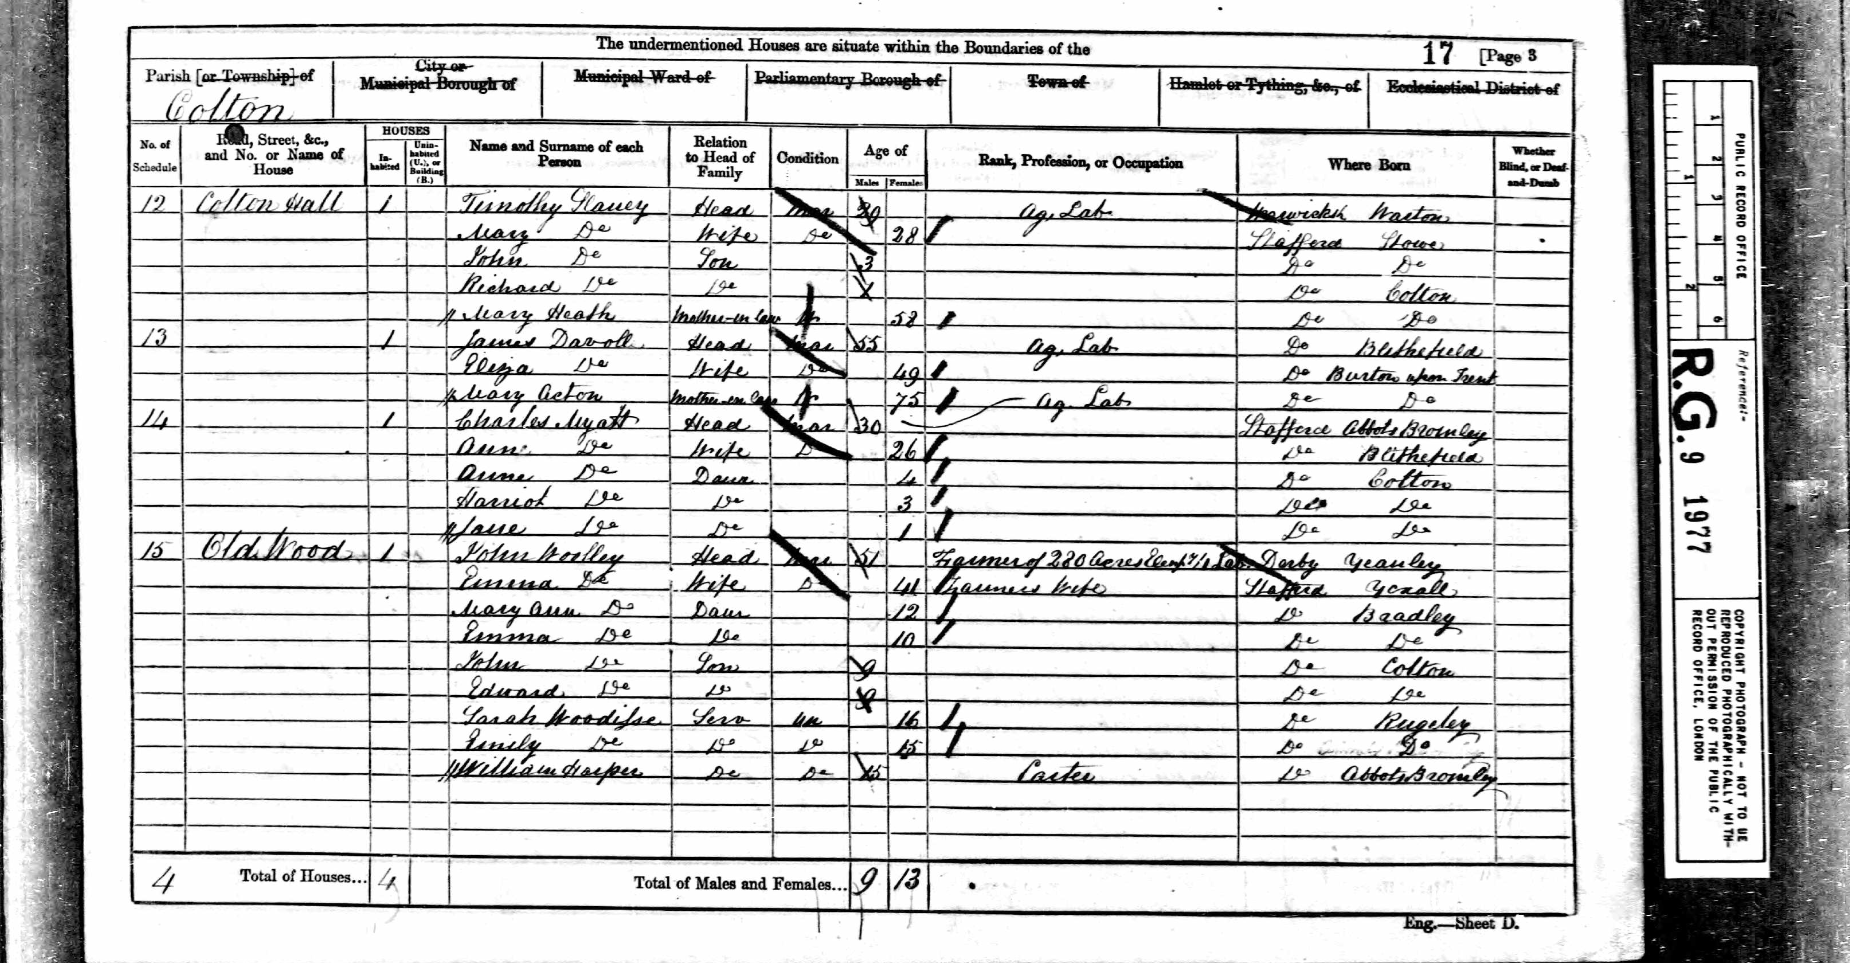 The undermentioned Houses are situate within the Boundaries of the
17 [Page 3
Parish [or Township] of
Colton
City or
Municipal Borough of
Municipal Ward of
Parliamentary Borough of
Town of
Hamlet or Tything, &c., of
Ecclesiastical District of
No. of Schedule
Road, Street, &c., and No. or Name of House
HOUSES
In-habited
Unin-habited (U.), or Building (B.)
Name and Surname of each Person
Relation to Head of Family
Condition
Age of
Males Females
Rank, Profession, or Occupation
Where Born
Whether Blind, or Deaf-and-Dumb
12 Colton Hall 1 Timothy Head Mar 30 Ag. Lab Warwicksh
Mary Do Wife Do 28 Stafford Stowe
John Do Son 3 Do Do
Richard Do Do Do Colton
Mary Heath Mother-in law W 58 Do Do
13 1 James Davoll Head Mar 55 Ag. Lab Do Blithefield
Eliza Do Wife Do 49 Do Burton upon Trent
Mary Acton Mother-in law W 75 Do Do
14 1 Charles Myatt Head Mar 30 Ag. Lab Stafford Abbots Bromley
Ann Do Wife D 26 Do Blithefield
Anne Do Daur 4 Do Colton
Harriot Do Do 3 Do Do
Jane Do Do 1 Do Do
15 Old Wood 1 John Woolley Head Mar 51 Farmer of 280 Acres Lab Derby Yeanley
Emma Do Wife D 41 Farmers Wife Stafford Yoxall
Mary Ann Do Daur 12 D Bradley
Emma Do Do 10 Do Do
John Do Son 9 Do Colton
Edward Do D Do Do
Sarah Woodisse Serv Un 16 Do Rugeley
Emily Do Do D 15 Do Do
William Harper Do Do 15 Carter D Abbots Bromley
4 Total of Houses... 4 Total of Males and Females... 9 13
Eng.—Sheet D.
PUBLIC RECORD OFFICE
Reference:-
R.G. 9 1977
COPYRIGHT PHOTOGRAPH - NOT TO BE
REPRODUCED PHOTOGRAPHICALLY WITH-
OUT PERMISSION OF THE PUBLIC
RECORD OFFICE, LONDON